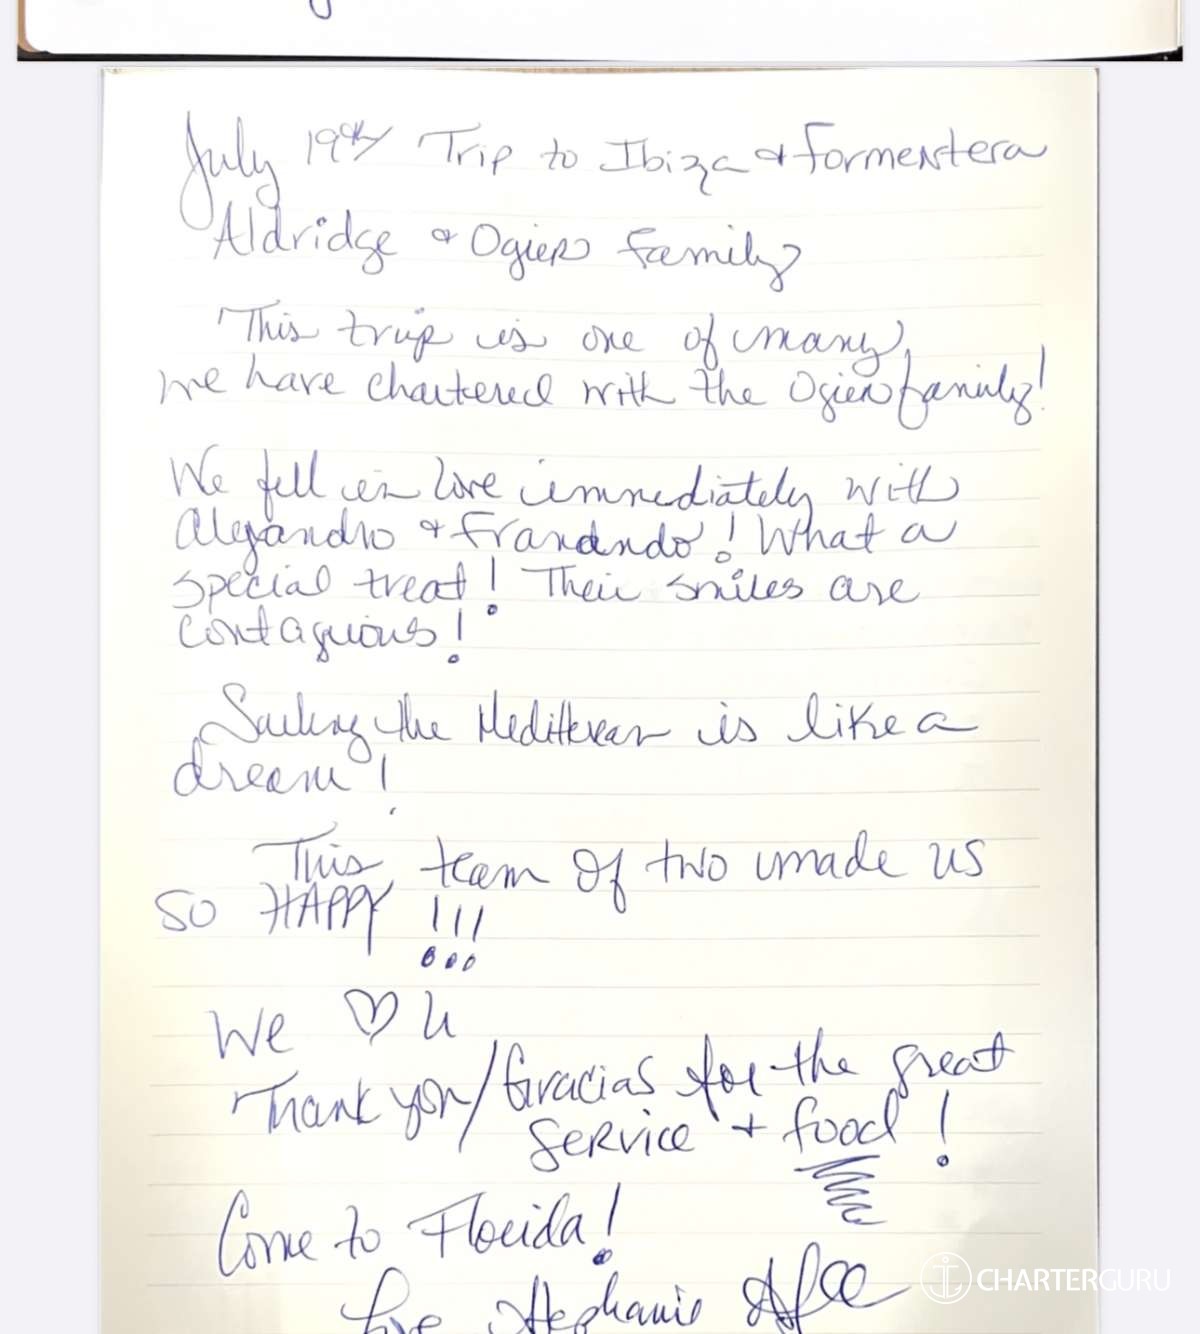 July 19th Trip to Ibiza & Formentera
Aldridge & Ogier Family
This trip is one of many
we have chartered with the Ogier family!
We fell in love immediately with
Alejandro & Franando! What a
special treat! Their smiles are
contaguious!
Sailing the Mediterean is like a
dream!
This team of two made us
SO HAPPY!!!
We ♡ U
Thank you/Gracias for the great
service + food!
Come to Florida!
Love Stephanie
CHARTERGURU